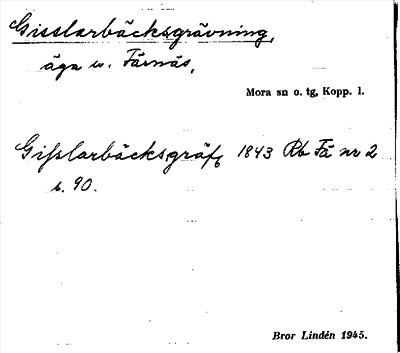 Gisslarbäcksgrävning,
äga u. Färnäs,
Mora sn o. tg, Kopp. l.
Gisslarbäcksgräfg 1843 Rb Fä nr 2
s. 90.
Bror Lindén 1945.